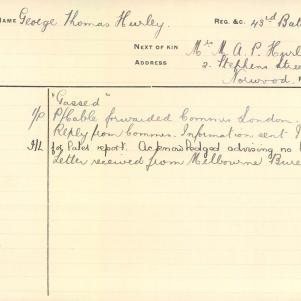 NAME George Thomas Hurley REG. &C. 43rd Bat
NEXT OF KIN Mr M. A. P. Hurl
ADDRESS 2. Stephens Stree
Norwood.
"Gassed"
forwarded Commrs London.
Reply from Commrs. Information sent
for later report. Acknowledged advising no
Letter received from Melbourne Bure